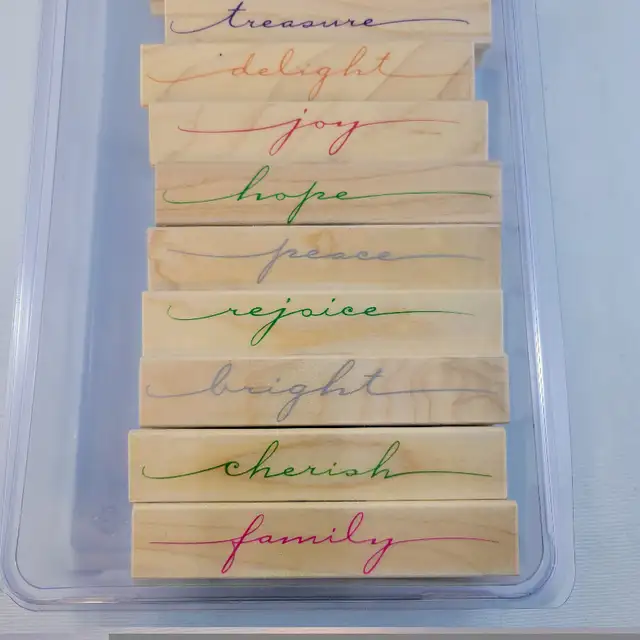 treasure
delight
joy
hope
peace
rejoice
bright
cherish
family